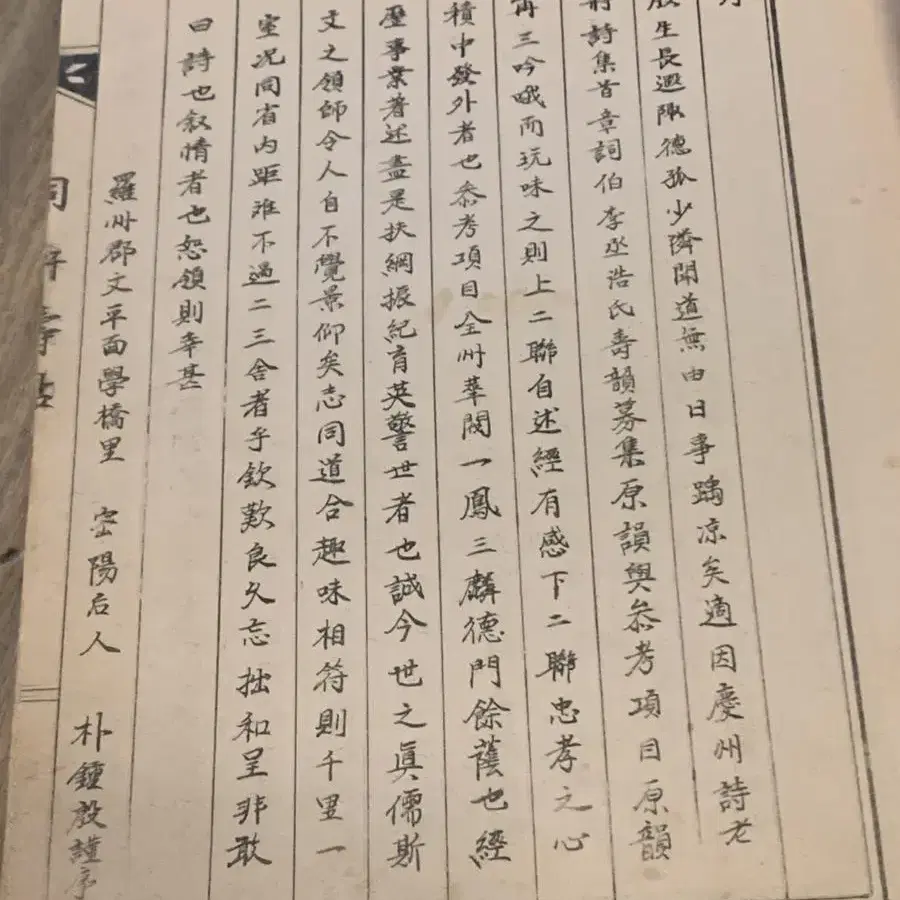 序
殷生長遐陬德孤少隣聞道無由日事踽凉矣適因慶州詩老
詩集首章詞伯李丞浩氏壽韻募集原韻與叅考項目原韻
再三吟哦而玩味之則上二聯自述經有感下二聯忠孝之心
積中發外者也叅考項目全州華閥一鳳三麟德門餘蔭也經
歷事業著述盡是扶綱振紀育英警世者也誠今世之眞儒斯
文之領師令人自不覺景仰矣志同道合趣味相符則千里一
室况同省內距離不過二三舍者乎欽歎良久忘拙和呈非敢
曰詩也敍情者也恕領則幸甚
羅州郡文平面學橋里 密陽后人 朴鍾殷謹序